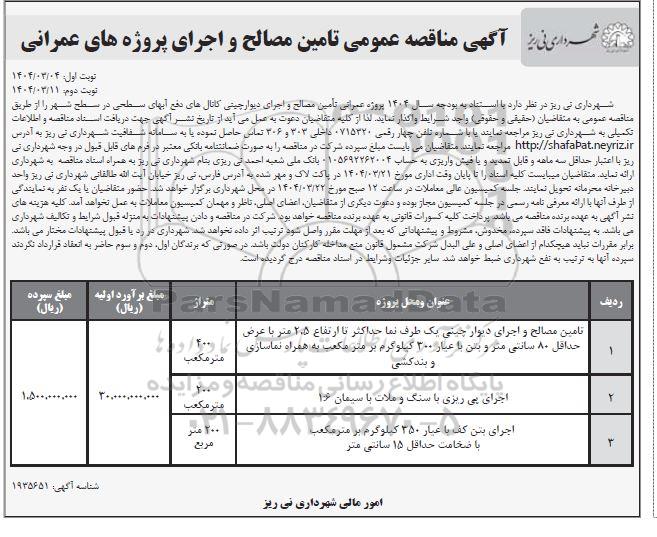 شهرداری نی ریز
آگهی مناقصه عمومی تامین مصالح و اجرای پروژه های عمرانی
نوبت اول: ۱۴۰۴/۰۳/۰۴
نوبت دوم: ۱۴۰۴/۰۳/۱۱
شهرداری نی ریز در نظر دارد با استناد به بودجه سال ۱۴۰۴ پروژه عمرانی تأمین مصالح و اجرای دیوارچینی کانال های دفع آبهای سطحی در سطح شهر را از طریق
مناقصه عمومی به متقاضیان (حقیقی و حقوقی) واجد شرایط واگذار نماید. لذا از کلیه متقاضیان دعوت به عمل می آید از تاریخ نشر آگهی جهت دریافت اسناد مناقصه و اطلاعات
تکمیلی به شهرداری نی ریز مراجعه نمایند یا با شماره تلفن چهار رقمی ۰۷۱۵۳۲۰ داخلی ۳۰۳ و ۳۰۶ تماس حاصل نموده یا به سامانه شفافیت شهرداری نی ریز به آدرس
http://shafaPat.neyriz.ir مراجعه نمایند. متقاضیان می بایست مبلغ سپرده شرکت در مناقصه را به صورت ضمانتنامه بانکی معتبر در فرم های قابل قبول در وجه شهرداری نی
ریز با اعتبار حداقل سه ماهه و قابل تمدید و یا فیش واریزی به حساب ۰۱۰۵۶۹۲۲۶۲۰۰۴ بانک ملی شعبه احمد نی ریزی بنام شهرداری نی ریز به همراه اسناد مناقصه به شهرداری
ارائه نماید. متقاضیان میبایست کلیه اسناد را تا پایان وقت اداری مورخ ۱۴۰۴/۰۳/۲۱ در پاکت لاک و مهر شده به آدرس فارس، نی ریز خیابان آیت الله طالقانی شهرداری نی ریز واحد
دبیرخانه محرمانه تحویل نمایند. جلسه کمیسیون عالی معاملات در ساعت ۱۲ صبح مورخ ۱۴۰۴/۰۳/۲۲ در محل شهرداری برگزار خواهد شد. حضور متقاضیان یا یک نفر به نمایندگی
از طرف آنها با ارائه معرفی نامه رسمی در جلسه کمیسیون مجاز بوده و دعوت دیگری از متقاضیان، اعضای اصلی، ناظر و مهمان کمیسیون معاملات به عمل نخواهد آمد. کلیه هزینه های
نشر آگهی به عهده برنده مناقصه می باشد. پرداخت کلیه کسورات قانونی به عهده برنده مناقصه خواهد بود. شرکت در مناقصه و دادن پیشنهادات به منزله قبول شرایط و تکالیف شهرداری
می باشد. به پیشنهادات فاقد سپرده، مخدوش، مشروط و پیشنهاداتی که بعد از مهلت مقرر واصل شود ترتیب اثر داده نخواهد شد. شهرداری در رد یا قبول پیشنهادات مختار می باشد.
برابر مقررات نباید هیچکدام از اعضای اصلی و علی البدل شرکت مشمول قانون منع مداخله کارکنان دولت باشد. در صورتی که برندگان اول، دوم و سوم حاضر به انعقاد قرارداد نگردند
سپرده آنها به ترتیب به نفع شهرداری ضبط خواهد شد. سایر جزئیات وشرایط در اسناد مناقصه درج گردیده است.
ردیف عنوان ومحل پروژه متراژ مبلغ برآورد اولیه (ریال) مبلغ سپرده (ریال)
۱ تامین مصالح و اجرای دیوار چینی یک طرف نما حداکثر تا ارتفاع ۲.۵ متر با عرض
حداقل ۸۰ سانتی متر و بتن با عیار ۳۰۰ کیلوگرم بر متر مکعب به همراه نماسازی
و بندکشی
۴۰۰ مترمکعب
۲ اجرای پی ریزی با سنگ و ملات با سیمان ۱:۶ ۲۰۰ مترمکعب ۳۰.۰۰۰.۰۰۰.۰۰۰ ۱.۵۰۰.۰۰۰.۰۰۰
۳ اجرای بتن کف با عیار ۳۵۰ کیلوگرم بر مترمکعب
با ضخامت حداقل ۱۵ سانتی متر
۲۰۰ متر مربع
ParsNamadData
پایگاه اطلاع رسانی مناقصه و مزایده
۰۲۱-۸۸۳۴۹۶۷۰-۵
شناسه آگهی: ۱۹۳۵۶۵۱
امور مالی شهرداری نی ریز